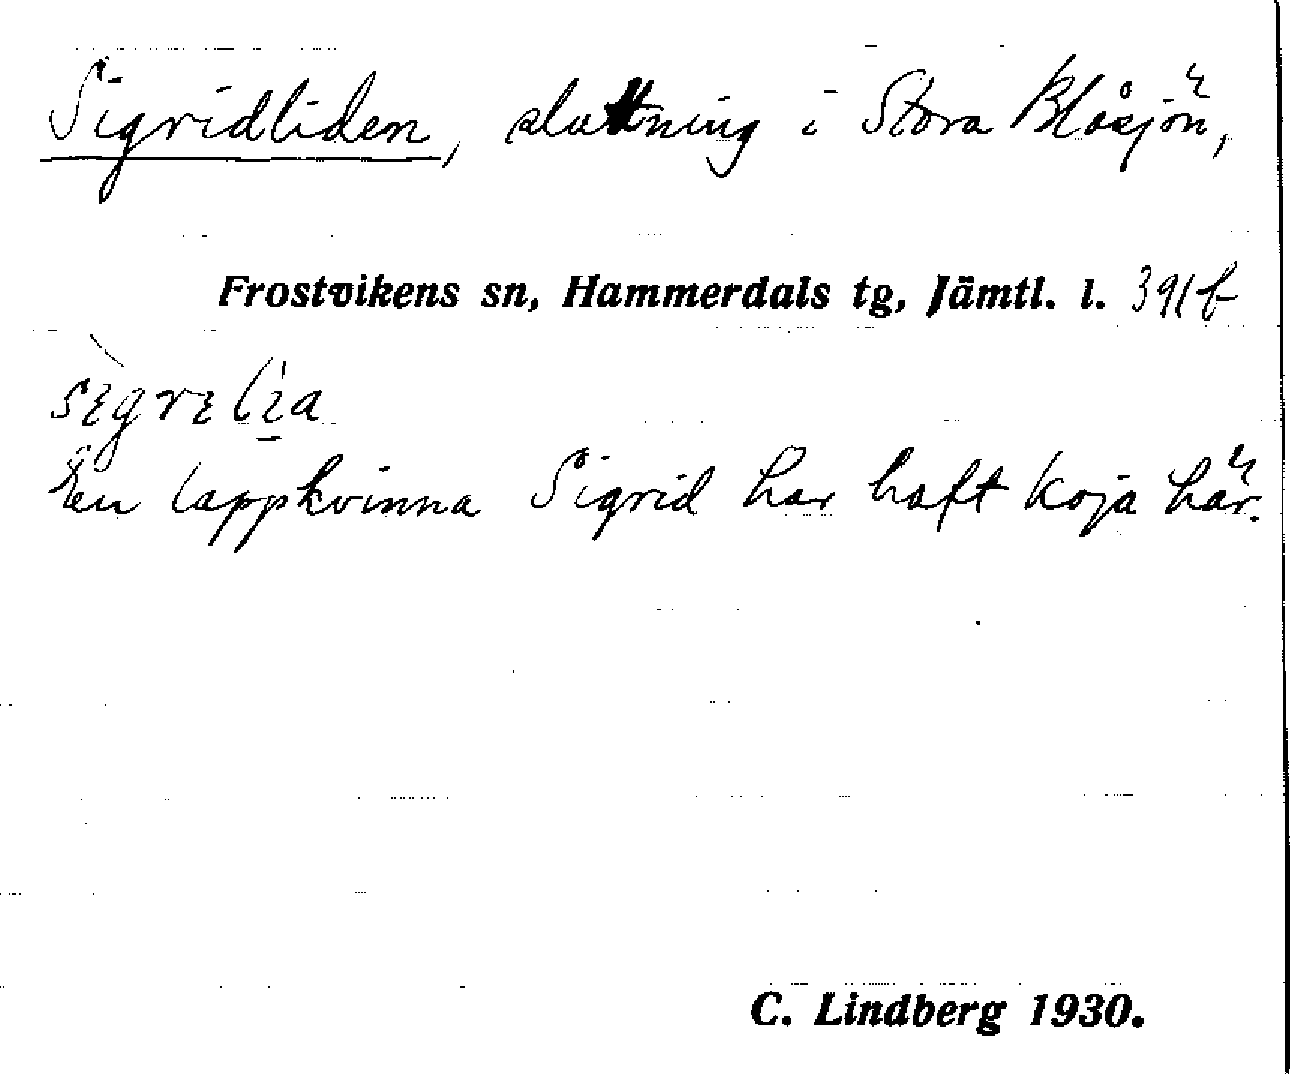 Sigridliden, sluttning i Stora Blåsjön,
Frostvikens sn, Hammerdals tg, Jämtl. l. 391b
En lappkvinna Sigrid har haft koja här.
C. Lindberg 1930.